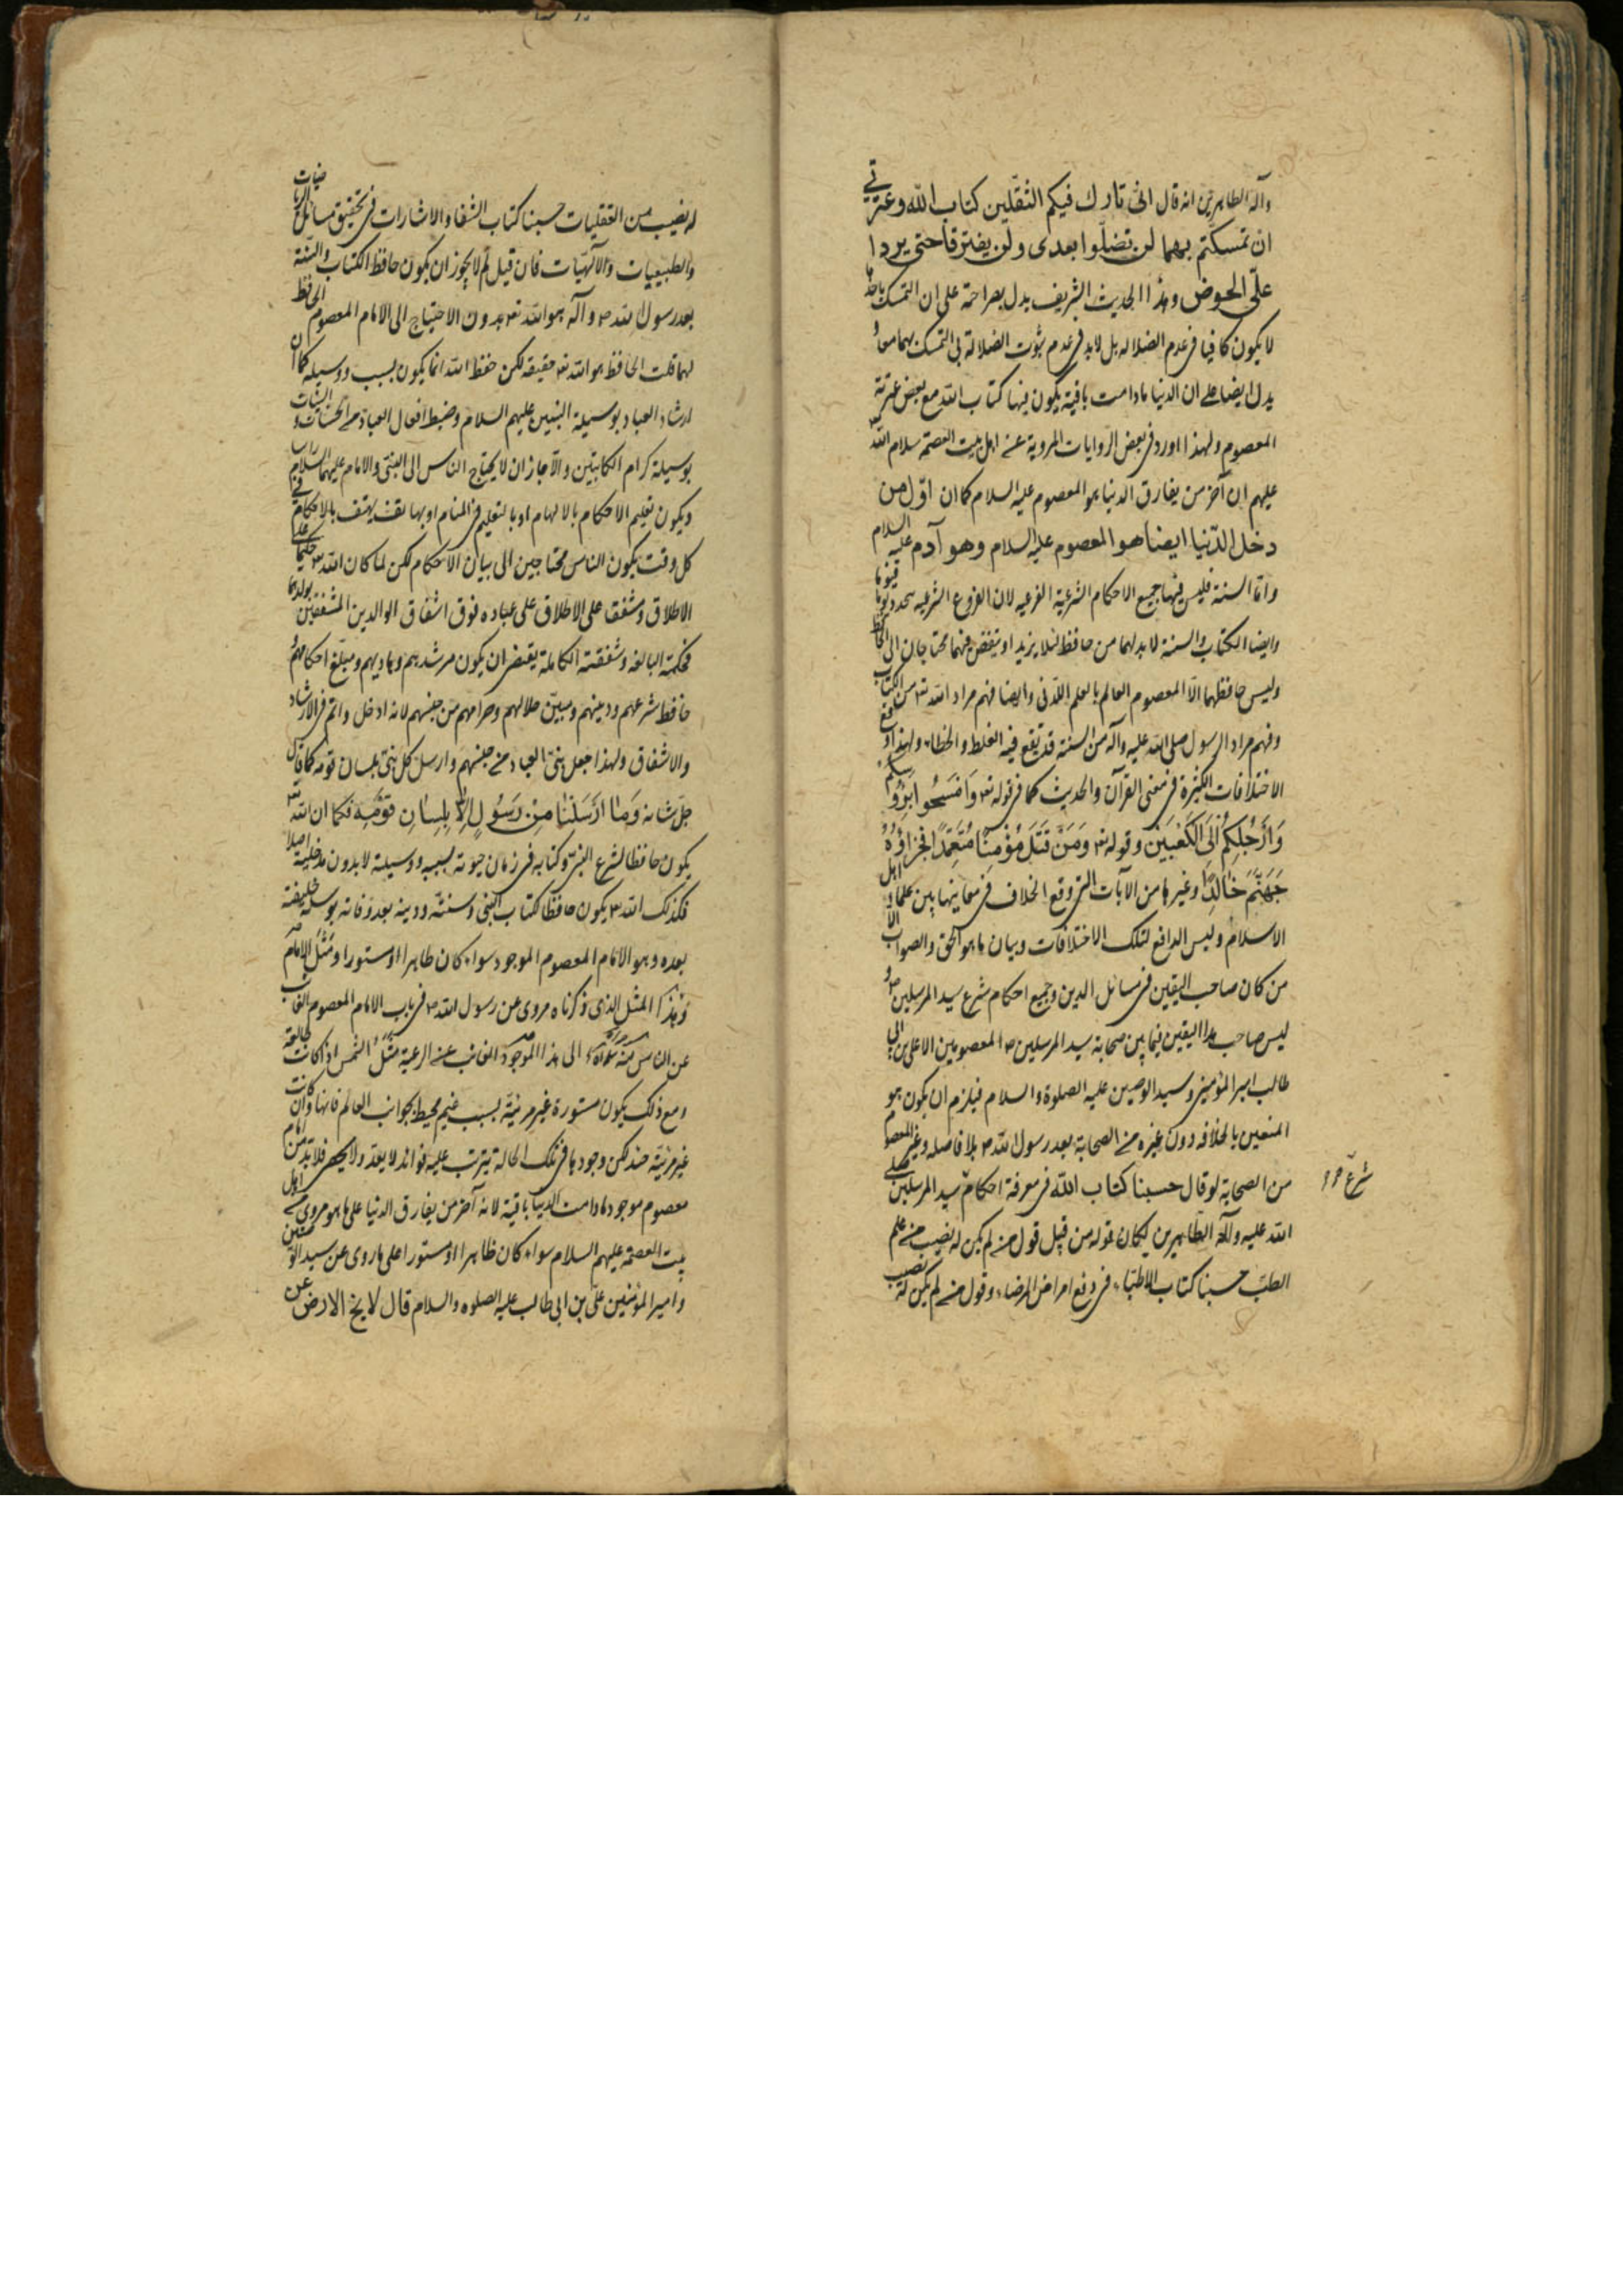 وآله الطاهرين انه قال انى تارك فيكم الثقلين كتاب الله وعترتي
ان تمسكتم بهما لن تضلوا بعدى ولن يفترقا حتى يردا
على الحوض وهذا الحديث الشريف يدل بصراحة على ان التمسك باحدهما
لا يكون كافيا فى عدم الضلاله بل لابد فى عدم ثبوت الضلالة بى التمسك بهما معا و
يدل ايضا على ان الدنيا مادامت باقية يكون فيها كتاب الله مع بعض عترته
المعصوم ولهذا اورد فى بعض الروايات المروية عن اهل بيت العصمة سلام الله
عليهم ان آخر من يفارق الدنيا هو المعصوم عليه السلام كما ان اول من
دخل الدنيا ايضا هو المعصوم عليه السلام وهو آدم عليه السلام
واما السنة فليس فيها جميع الاحكام الشرعية الفرعيه لان الفروع الشرعيه يتجدد يوما فيوما
وايضا الكتاب والسنة لابد لهما من حافظ لئلا يزيد او ينقص فهما محتاجان الى الحافظ
وليس حافظهما الا المعصوم العالم بالعلم اللدنى وايضا فهم مراد الله تع من الكتاب
وفهم مراد الرسول صلى الله عليه وآله من السنة قد يقع فيه الغلط والخطاء ولهذا وقع
الاختلافات الكثيرة فى معنى القرآن والحديث كما فى قوله تع وَامْسَحُوا بِرُؤُسِكُمْ
وَأَرْجُلِكُمْ إِلَى الْكَعْبَيْنِ وقوله تع وَمَنْ قَتَلَ مُؤْمِنًا مُتَعَمِّدًا فَجَزَاؤُهُ
جَهَنَّمُ خَالِدًا وغيرها من الآيات التى وقع الخلاف فى معانيها بين علماء اهل
الاسلام وليس الدافع لتلك الاختلافات وبيان ما هو الحق والصواب الا
من كان صاحب اليقين فى مسائل الدين وجميع احكام شرع سيد المرسلين ص و
ليس صاحب هذا اليقين فيما بين صحابة سيد المرسلين ص المعصومين الا على بن ابى
طالب امير المؤمنين وسيد الوصيين عليه الصلوة والسلام فيلزم ان يكون هو
المتعين بالخلافه دون غيره من الصحابة بعد رسول الله ص بلا فاصله وغير المعصوم
من الصحابة لو قال حسبنا كتاب الله فى معرفة احكام سيد المرسلين صلى
شرع
الله عليه وآله الطاهرين لكان قوله من قبيل قول من لم يكن له نصيب من علم
الطب حسبنا كتاب الاطباء فى دفع امراض المرضاء وقول من لم يكن له نصيب
له نصيب من العقليات حسبنا كتاب الشفا والاشارات فى تحقيق مسائل الرياضيات
والطبيعيات والالهيات فان قيل لم لا يجوز ان يكون حافظ الكتاب والسنة
بعد رسول الله ص وآله هو الله تع بدون الاحتياج الى الامام المعصوم الحافظ
لهما قلت الحافظ هو الله تع حقيقة لكن حفظ الله انما يكون بسبب ووسيله كما ان
ارشاد العباد بوسيلة النبيين عليهم السلام وضبط افعال العباد من الحسنات والسيئات
بوسيلة كرام الكاتبين والا جاز ان لا يحتاج الناس الى النبى والامام عليهما السلام
ويكون تعليم الاحكام بالالهام او بالتعليم فى المنام او بهاتف يهتف بالاحكام فى
كل وقت يكون الناس محتاجين الى بيان الاحكام لكن لما كان الله تع حكيما على
الاطلاق ومشفقا على الاطلاق على عباده فوق اشفاق الوالدين المشفقين بولدهما
فحكمته البالغه وشفقته الكاملة يقتضى ان يكون مرشدهم وهاديهم ومبلغ احكامهم و
حافظ شرعهم ودينهم ومبين حلالهم وحرامهم من جنسهم لانه ادخل واتم فى الارشاد
والاشفاق ولهذا جعل نبى العباد من جنسهم وارسل كل نبى بلسان قومه كما قال
جل شانه وَمَا أَرْسَلْنَا مِنْ رَسُولٍ إِلَّا بِلِسَانِ قَوْمِهِ فكما ان الله تع
يكون حافظا لشرع النبى وكتابه فى زمان حيوته بسببه ووسيلة لا بدون مدخلية اصلا
فكذلك الله تع يكون حافظا كتاب النبى وسنته ودينه بعد وفاته بوسيلة خليفته
بعده وهو الامام المعصوم الموجود سواء كان ظاهرا او مستورا ومثل الامام
وهذا المثل الذى ذكرناه مروى عن رسول الله ص فى باب الامام المعصوم الغائب
عن الناس الى هذا الموجود الغائب عن الرعية مثل الشمس اذا كانت طالعة
ومع ذلك يكون مستورة غير مرئية بسبب غيم محيط بجوانب العالم فانها وان كانت
غير مرئية لكن وجودها فى تلك الحالة يترتب عليه فوائد لا يعد ولا يحصى فلابد من امام
معصوم موجود مادامت الدنيا باقية لانه آخر من يفارق الدنيا على ما هو مروى من اهل
بيت العصمة عليهم السلام سواء كان ظاهرا او مستورا على ما روى عن سيد
وامير المؤمنين على بن ابى طالب عليه الصلوه والسلام قال لا يخ الارض عن